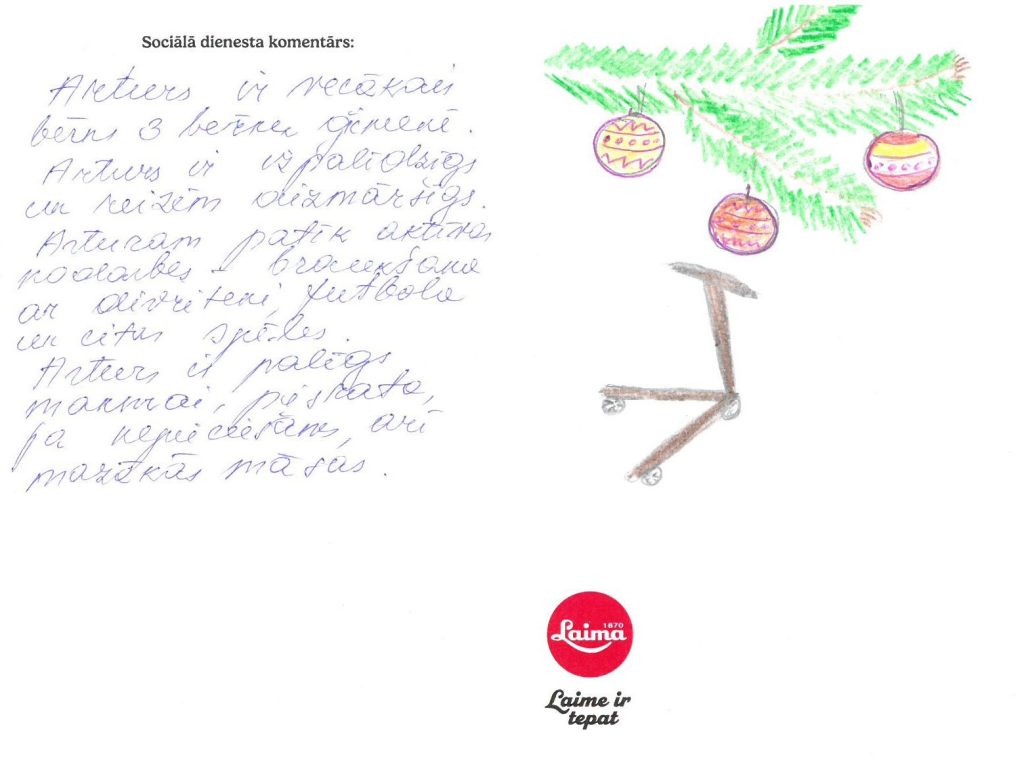 Sociālā dienesta komentārs:
Arturs ir vecākais
bērns 3 bērnu ģimenē.
Arturs ir izpalīdzīgs
un reizēm aizmāršīgs.
Arturam patīk aktīvas
nodarbes - braukšana
ar divriteni, futbola
un citas spēles.
Arturs ir palīgs
mammai, pieskata,
ja nepieciešams, arī
mazākās māsas.
1870
Laima
Laime ir
tepat